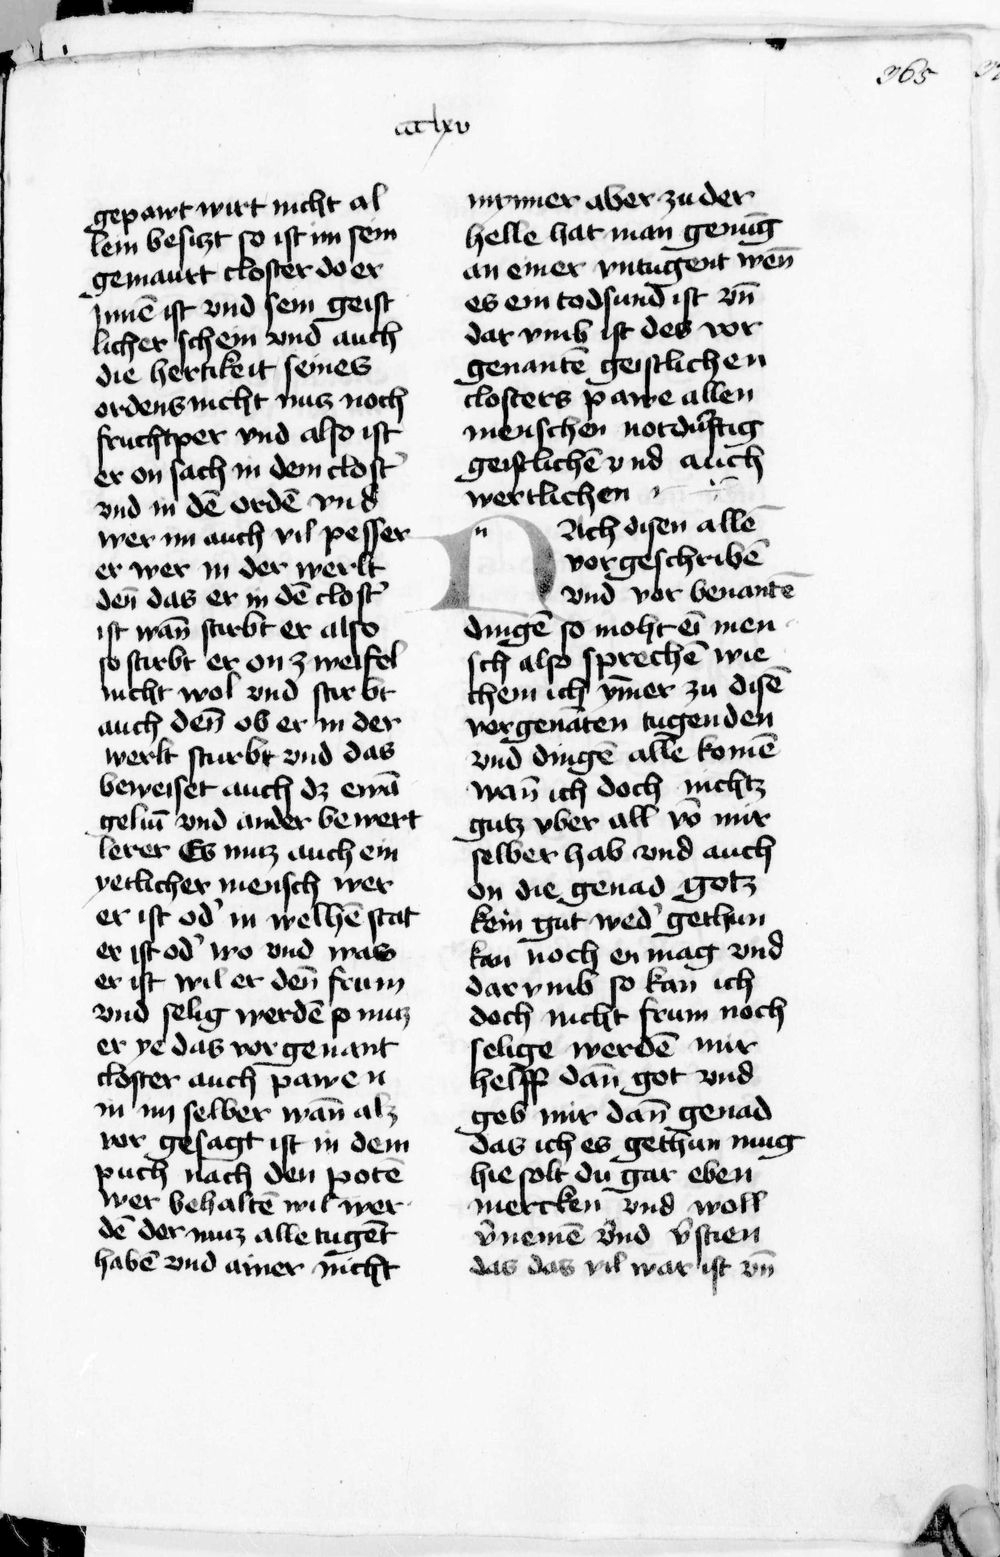 365
cclxv
gepawt wirt nicht al
lein besitzt so ist im sein
gemaurt closter do er
Jnnē ist vnd sein geist
licher schein vnd auch
die hertikeit seines
ordens nicht nutz noch
fruchtper vnd also ist
er on sach in dem clost'
vnd in dē ordē vnd
wer im auch vil pesser
er wer in der werlt
deñ das er in dē clost'
ist wañ stirbt er also
so stirbt er on zweifel
nicht wol vnd stirbt
auch deñ ob er in der
werlt sturbt vnd das
beweiset auch dz ewā
geliū vnd ander bewert
lerer Es muz auch ein
yetlicher mensch wer
er ist od' in welhē stat
er ist od' wo vnd was
er ist wil er deñ frum
vnd selig werdē so muz
er ye das vorgenant
closter auch pawen
in im selber wañ alz
vor gesagt ist in dem
puch nach den potē
wer behaltē wil wer
dē der muz alle tugēt
habē vnd ainer nicht
mynner aber zu der
helle hat man genūg
an einer vntugent weñ
es ein todsund ist vñ
dar vmb ist des vor
genantē geistlichen
closters pawe allen
menschen notdurftig
geistlichē vnd auch
wertlichen
n
NAch disen allē
vorgeschribē
vnd vor benantē
dingē so moht eī men
sch also sprechē wie
chem ich ym̄er zu disē
vorgenāten tugenden
vnd dingē alle komē
wañ ich doch nichtz
gutz vber all vō mir
selber hab vnd auch
on die genad gotz
kein gut wed' gethun
kan noch en mag vnd
dar vmb so kan ich
doch nicht frum noch
selige werdē mir
helff dañ got vnd
geb mir dañ genad
das ich es gethun mug
hie solt du gar eben
mercken vnd woll
v'nemē vnd v'stien
das das vil war ist vñ